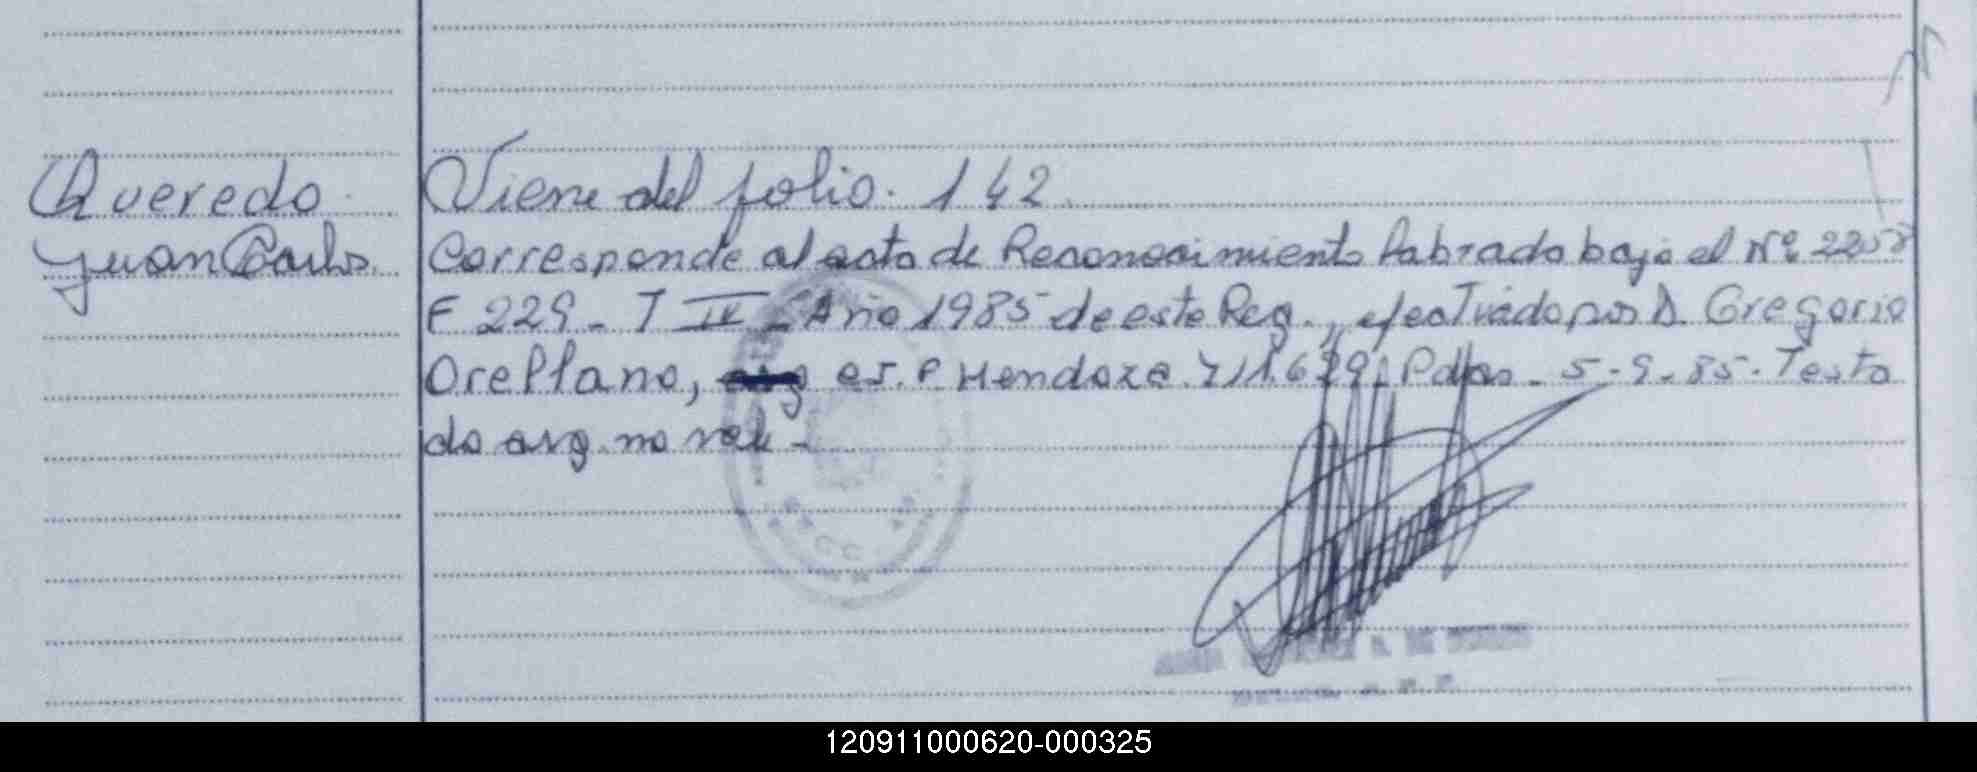 Queredo
Juan Carlos.
Viene del folio. 142.
Corresponde al acta de Reconocimiento labrado bajo el Nº 2258
F 229 - T IV - Año 1985 de este Reg., efectuado por D. Gregorio
Orellano, arg es. P. Mendoza. 711.639. Pdas. 5-9-85. Testa
do arg. no vale -
120911000620-000325